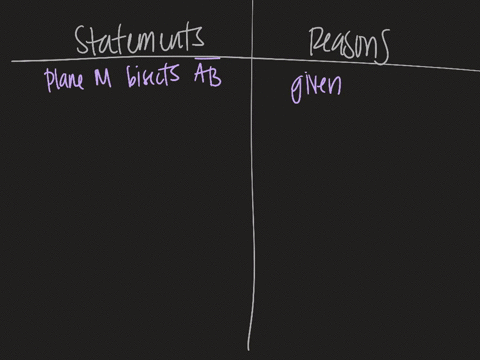 Statements Reasons
plane M bisects A̅B̅ given